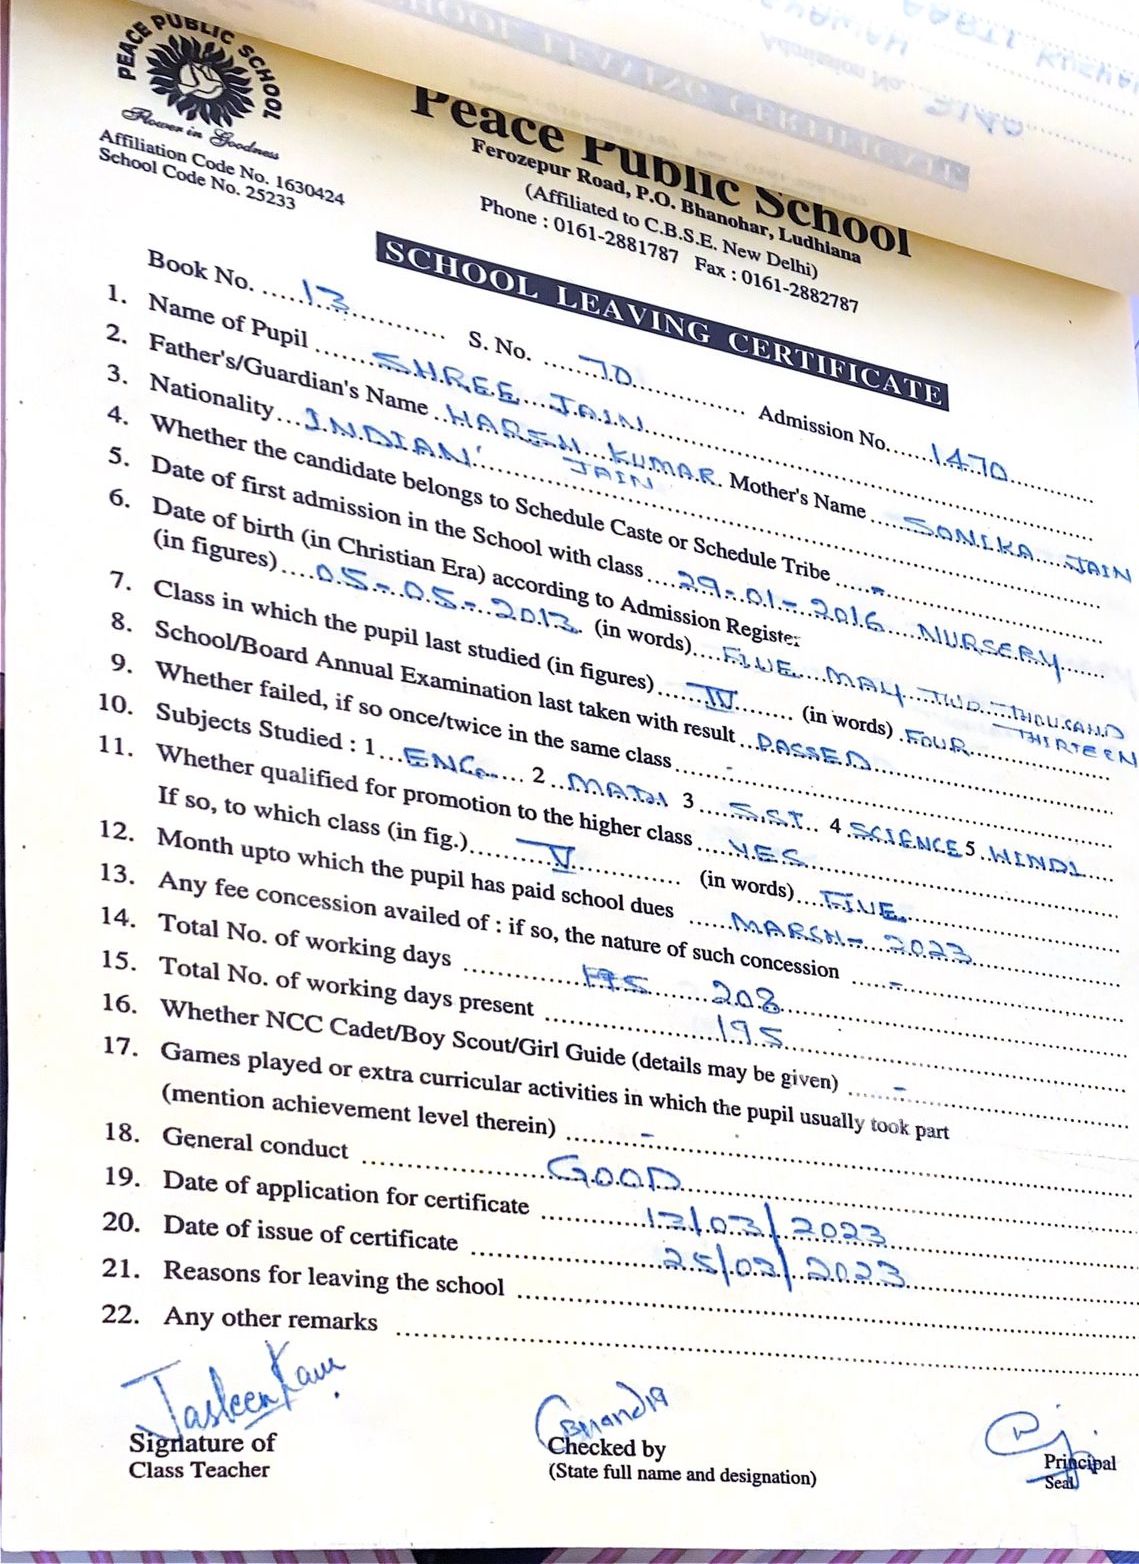 PEACE PUBLIC SCHOOL
Flower in Goodness
Affiliation Code No. 1630424
School Code No. 25233
Peace Public School
Ferozepur Road, P.O. Bhanohar, Ludhiana
(Affiliated to C.B.S.E. New Delhi)
Phone : 0161-2881787 Fax : 0161-2882787
SCHOOL LEAVING CERTIFICATE
Book No. 13 S. No. 70 Admission No. 1470
1. Name of Pupil SHREE JAIN
2. Father's/Guardian's Name HARSH KUMAR JAIN Mother's Name SONIKA JAIN
3. Nationality INDIAN
4. Whether the candidate belongs to Schedule Caste or Schedule Tribe -
5. Date of first admission in the School with class 29-01-2016 NURSERY
6. Date of birth (in Christian Era) according to Admission Register
(in figures) 05-05-2013 (in words) FIVE MAY TWO THOUSAND THIRTEEN
7. Class in which the pupil last studied (in figures) IV (in words) FOUR
8. School/Board Annual Examination last taken with result PASSED
9. Whether failed, if so once/twice in the same class -
10. Subjects Studied : 1 ENG 2 3 S.ST 4 SCIENCE 5 HINDI
11. Whether qualified for promotion to the higher class YES
If so, to which class (in fig.) V (in words) FIVE
12. Month upto which the pupil has paid school dues MARSH-2023
13. Any fee concession availed of : if so, the nature of such concession -
14. Total No. of working days 208
15. Total No. of working days present 195
16. Whether NCC Cadet/Boy Scout/Girl Guide (details may be given) -
17. Games played or extra curricular activities in which the pupil usually took part
(mention achievement level therein) -
18. General conduct GOOD
19. Date of application for certificate 13/03/2023
20. Date of issue of certificate 25/03/2023
21. Reasons for leaving the school
22. Any other remarks
Jasleen Kaur
Signature of
Class Teacher
Checked by
(State full name and designation)
Principal
Seal